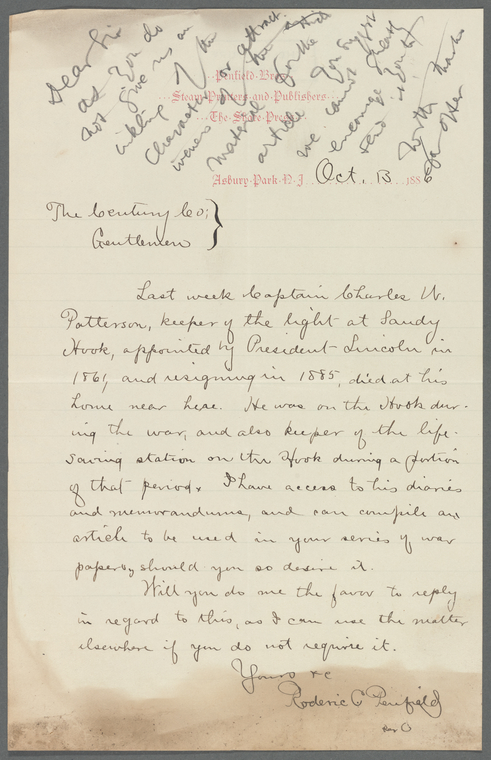 Dear Sir
As you do
not give us an
inkling of the
character or attract
iveness of the
material for the
article you suggest
we cannot
encourage
send
With thanks
for offer
Penfield Bros.
Steam Printers and Publishers
The Shore Press
Asbury Park N. J. Oct. 13 188
The Century Co;
Gentlemen }
Last week Captain Charles W.
Patterson, keeper of the light at Sandy
Hook, appointed by President Lincoln in
1861, and resigning in 1885, died at his
home near here. He was on the Hook dur-
ing the war, and also keeper of the life-
saving station on the Hook during a portion
of that period. I have access to his diaries
and memorandums, and can compile an
article to be used in your series of war
papers, should you so desire it.
Will you do me the favor to reply
in regard to this, as I can use the matter
elsewhere if you do not require it.
Yours &c
Roderic C Penfield